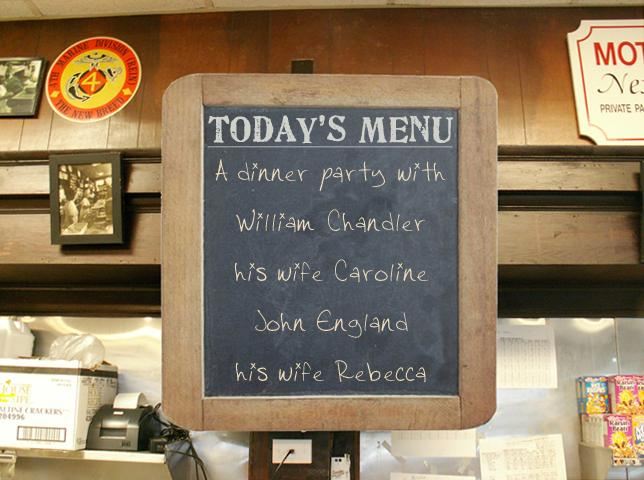 4TH MARINE DIVISION (REIN)
4
THE NEW BREED
MOT
Ne
PRIVATE PA
TODAY'S MENU
A dinner party with
William Chandler
his wife Caroline
John England
his wife Rebecca
HOUSE
SALTINE CRACKERS
284996
Raisin
Bran
Raisin
Bran